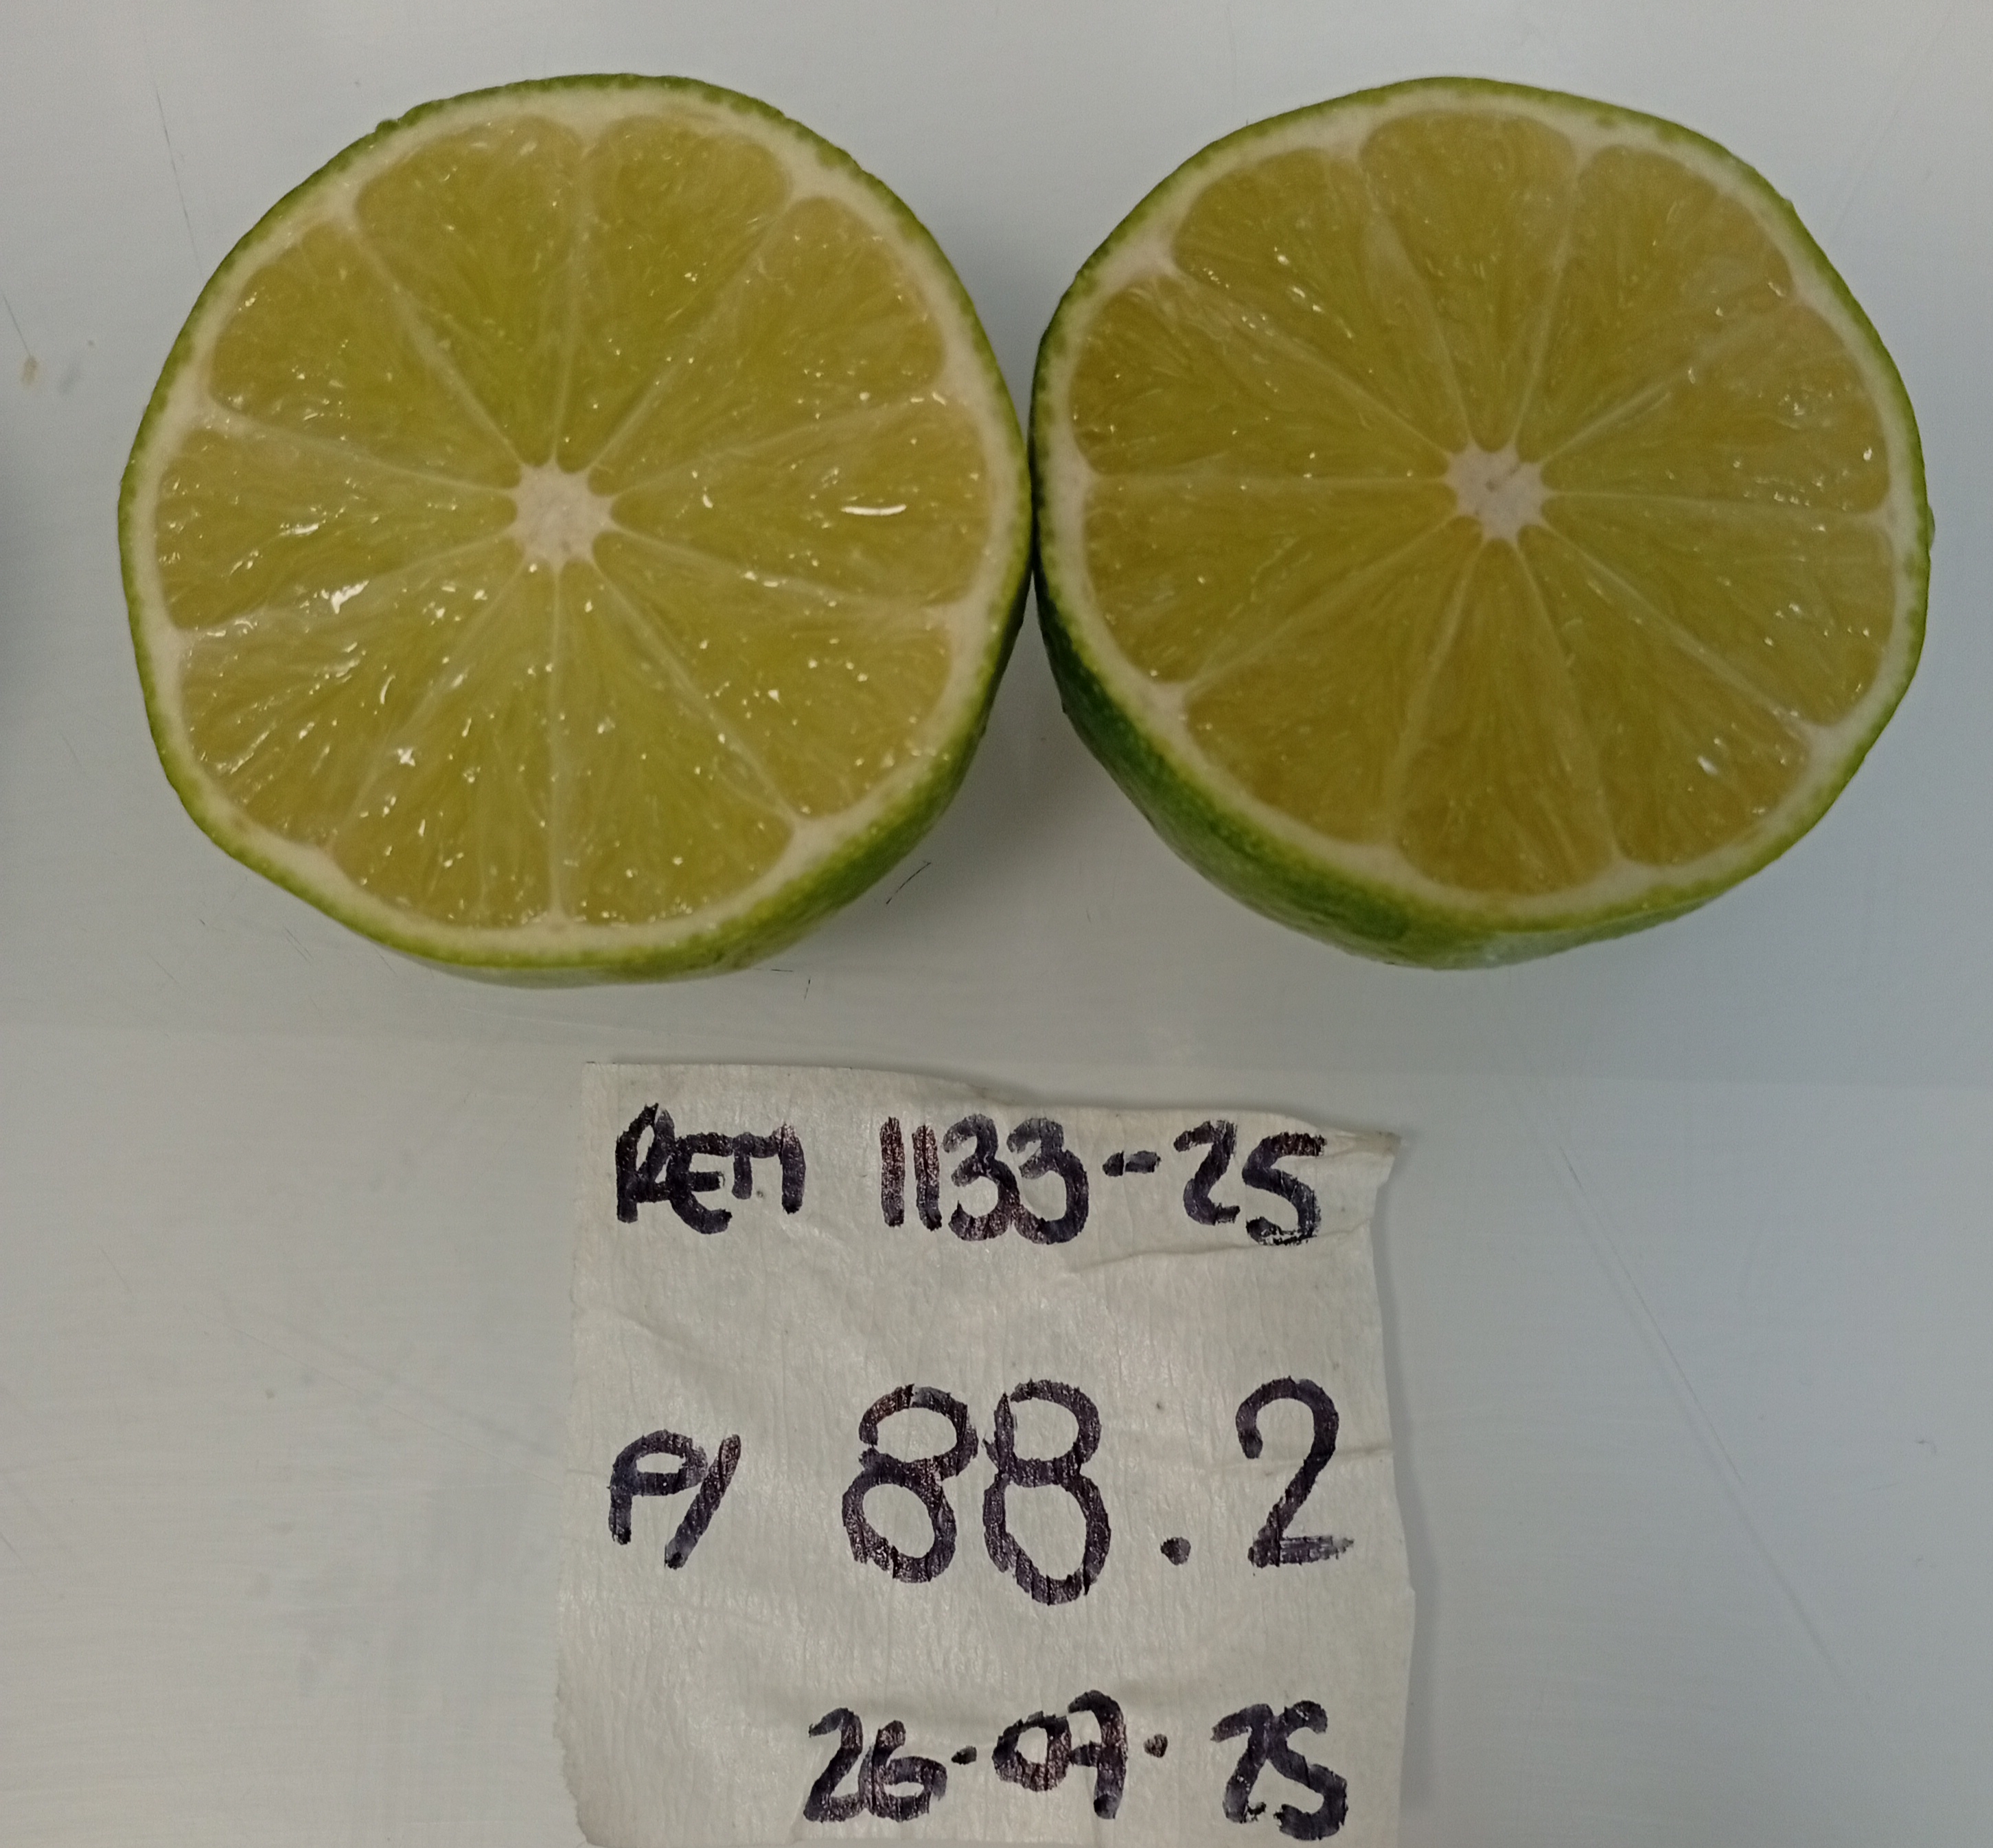 REM 1133-25
P/ 88.2
26-07-25